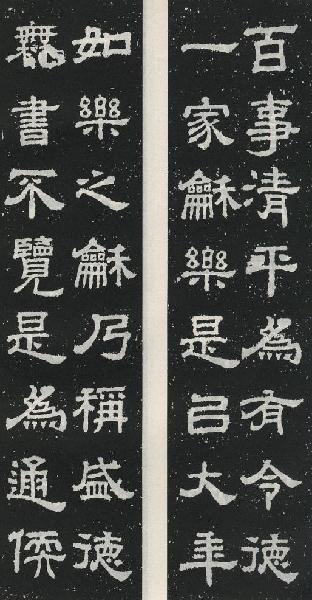 百事清平為有令德
一家龢樂是㠯大年
如樂之龢乃稱盛德
無書不覽是為通儒